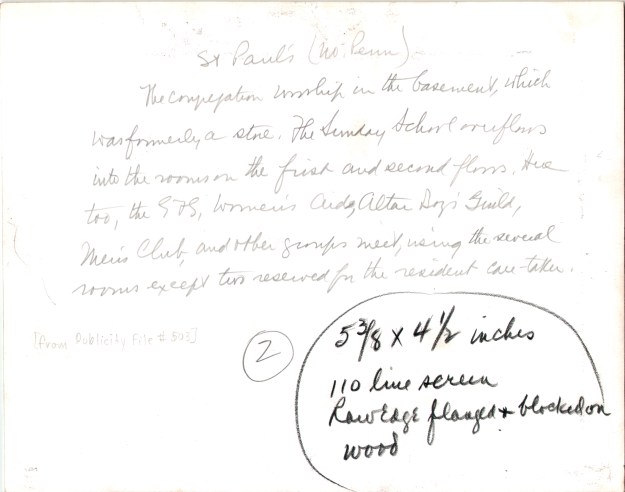 St Paul's (No. Penn)
The congregation worship in the basement, which
was formerly a store. The Sunday School overflows
into the rooms on the first and second floors. Here
too, the GFS, Women's Aux, Altar Boys' Guild,
Men's Club, and other groups meet, using the several
rooms except two reserved for the resident care-taker.
[from Publicity File # 503]
2
5 3/8 x 4 1/2 inches
110 line screen
Raw Edge flanged + blocked on
wood